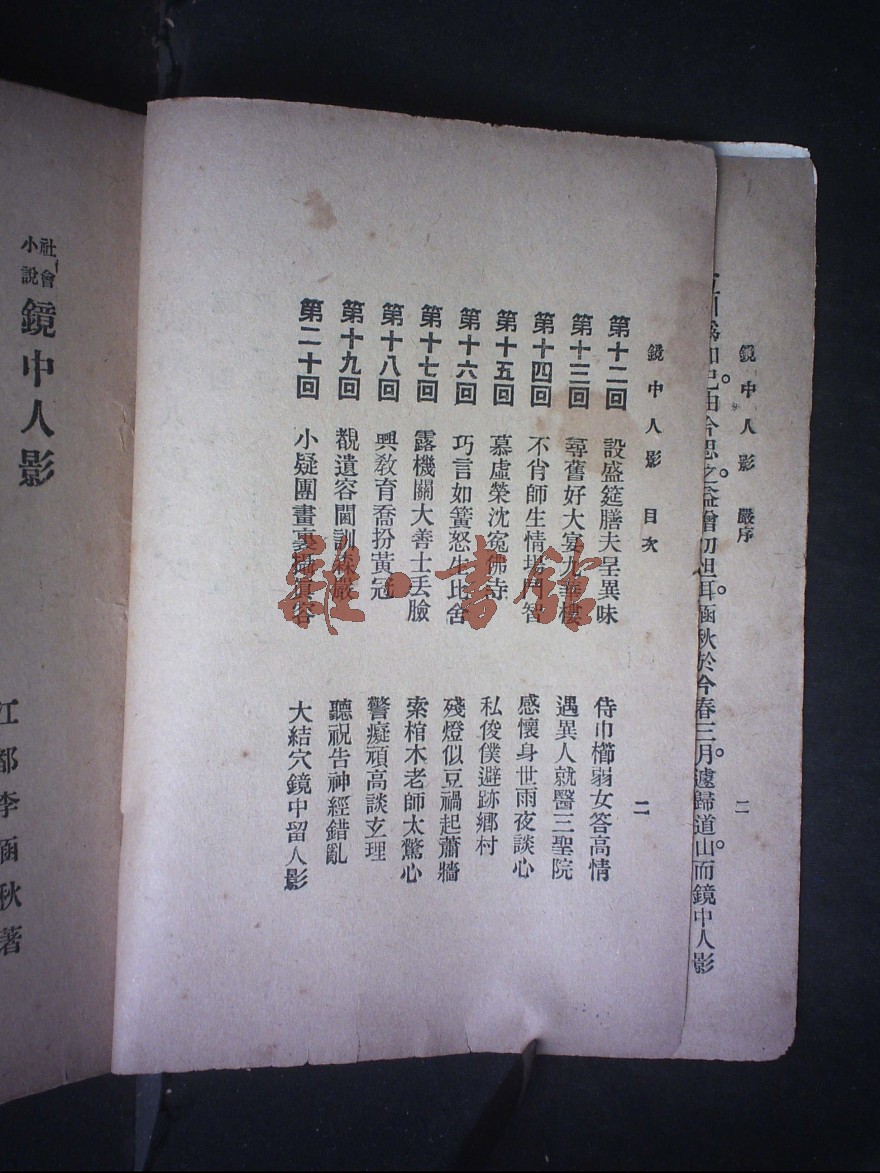 鏡中人影　嚴序　二
爲知己由今思之益憎忉怛耳涵秋於今春三月遽歸道山而鏡中人影
鏡中人影　目次　二
第十二回　設盛筵膳夫呈異味　侍巾櫛弱女答高情
第十三回　尋舊好大宴九華樓　遇異人就醫三聖院
第十四回　不肖師生情場鬥智　感懷身世雨夜談心
第十五回　慕虛榮沈冤佛寺　私俊僕避跡鄉村
第十六回　巧言如簧怒生比舍　殘燈似豆禍起蕭牆
第十七回　露機關大善士丟臉　索棺木老師太驚心
第十八回　興敎育喬扮黃冠　警癡頑高談玄理
第十九回　覩遺容閫訓森嚴　聽祝告神經錯亂
第二十回　小疑團畫裏攝真容　大結穴鏡中留人影
雜·書館
社會小說　鏡中人影
江都李涵秋著